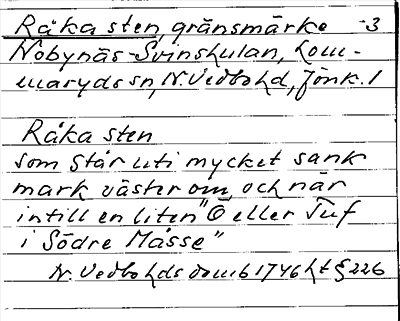 Råka sten, gränsmärke -3
Nobynäs-Svinhulan, Lom-
maryds sn, N. Vedbo hd, Jönk. l
Råka sten
som står uti mycket sank
mark väster om och när
intill en liten "Ö eller Tuf
i Södre Måsse"
N. Vedbo hds domb 1746 ht § 226